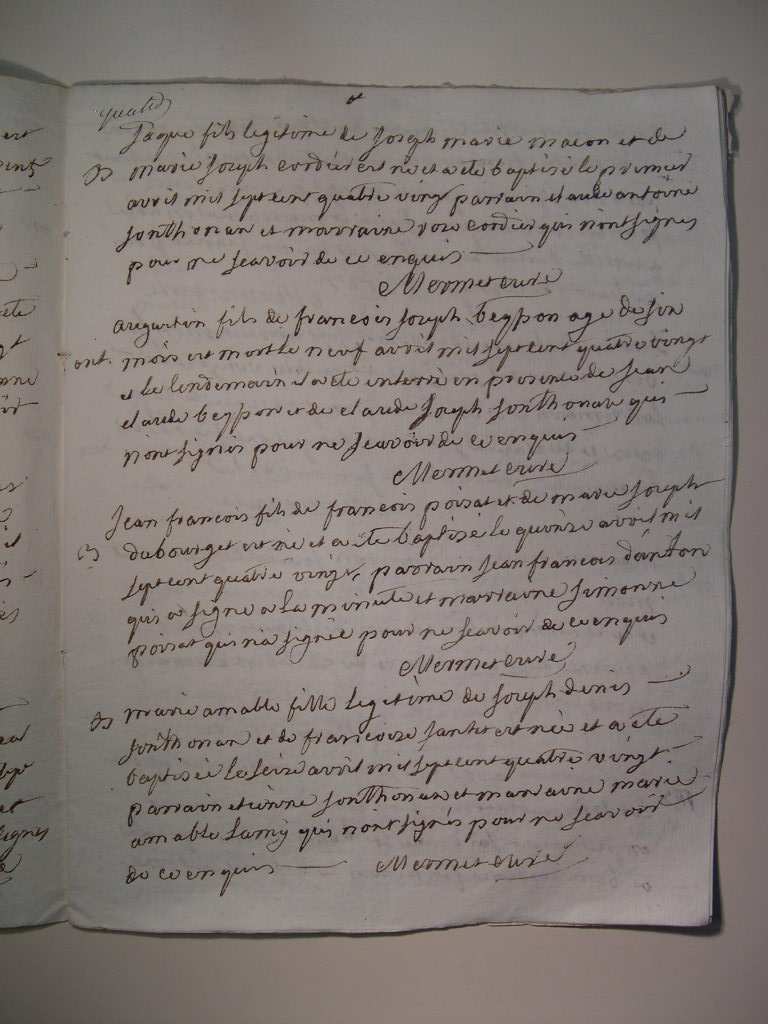 quatre
Jaque fils legitime de Joseph marie macon et de
B marie Joseph cordier est né et a ete baptisé le premier
avril mil sept cent quatre vingt parrain claude antoine
Sonthonax et marraine rose cordier qui nont signes
pour ne scavoir de ce enquis
Mermet curé
augustin fils de francois Joseph beypon age de six
ort. mois est mort le neuf avril mil sept cent quatre vingt
et le lendemain il a ete enterré en presence de Jean
claude beypon et de claude Joseph Sonthonax qui
nont signés pour ne scavoir de ce enquis
Mermet curé
Jean francois fils de francois poisat et de marie Joseph
B dubourget est né et a ete baptisé le quinze avril mil
sept cent quatre vingt, parrain Jean francois danton
qui a signe a la minute et marraine Simonne
poisat qui n'a signée pour ne scavoir de ce enquis
Mermet curé
B marie amable fille legitime de Joseph denis
Sonthonax et de francoise Santet est née et a ete
baptisée le seize avril mil sept cent quatre vingt
parrain etienne Sonthonax et marraine marie
amable Lamy qui nont signés pour ne scavoir
de ce enquis Mermet curé